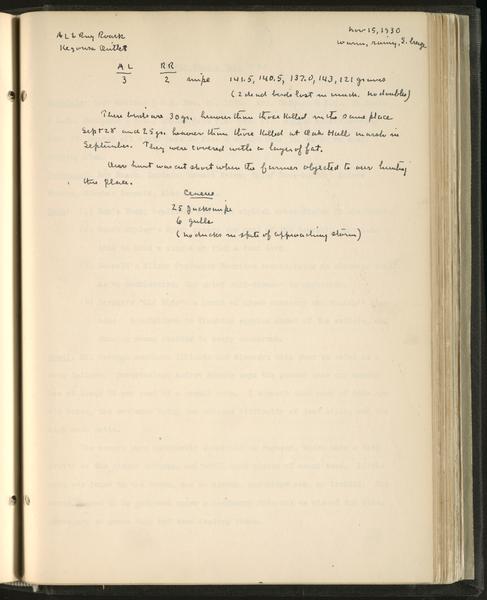 AL & Ray Roark
Kegonsa Outlet
Nov 15, 1930
Warm, rainy, S. breeze
AL RR
3 2 snipe 141.5, 140.5, 137.0, 143, 121 grams
(2 dead birds lost in muck. No doubles)
These birds are 30 gr. heavier than those killed in the same place
Sept 28 and 25 gr. heavier than those killed at Oak Hall marsh in
September. They were covered with a layer of fat.
Our hunt was cut short when the farmer objected to our hunting
this place.
Census
25 Jacksnipe
6 gulls
(No ducks in spite of approaching storm)